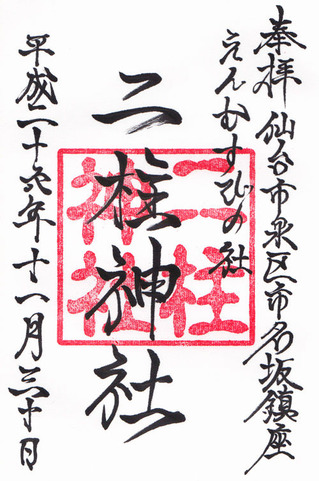 奉拝 仙台市泉区市名坂鎮座
えんむすびの社
二柱神社
二柱神社
平成二十六年十一月三十日